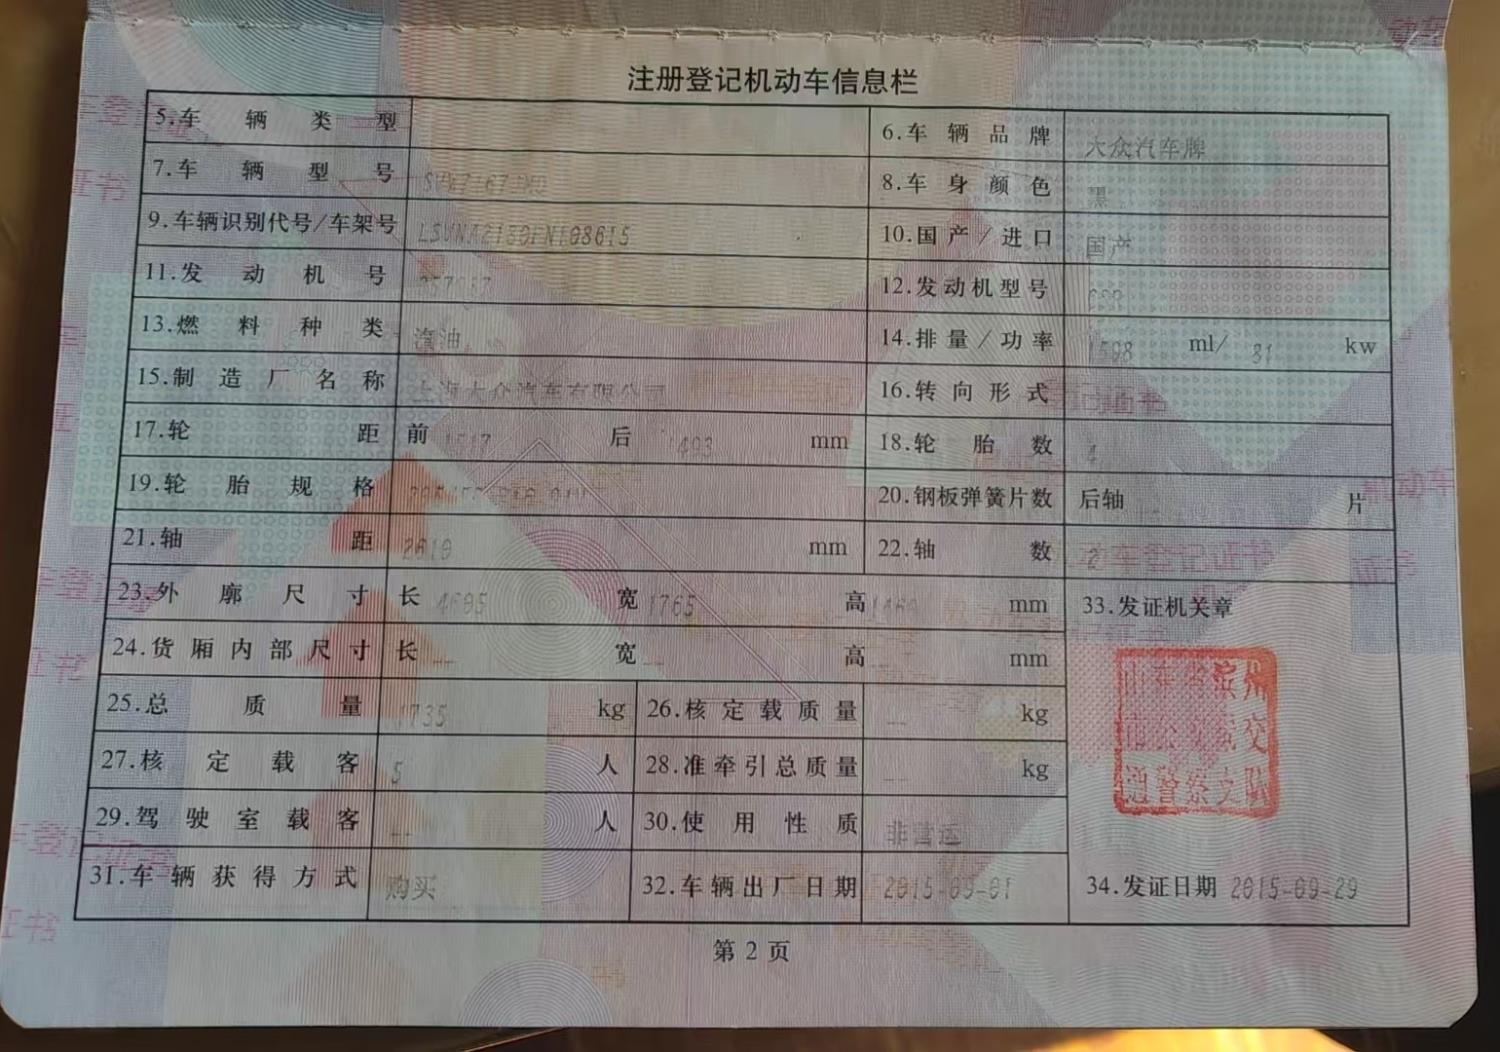 注册登记机动车信息栏
5.车辆类型 6.车辆品牌 大众汽车牌
7.车辆型号 8.车身颜色 黑
9.车辆识别代号/车架号 10.国产/进口 国产
11.发动机号 12.发动机型号
13.燃料种类 汽油 14.排量/功率 1598 ml/ 81 kw
15.制造厂名称 上海大众汽车有限公司 16.转向形式
17.轮距 前 后 1493 mm 18.轮胎数 4
19.轮胎规格 20.钢板弹簧片数 后轴 片
21.轴距 mm 22.轴数 2
23.外廓尺寸 长 宽 1765 高 mm 33.发证机关章
24.货厢内部尺寸 长 -- 宽 -- 高 -- mm
25.总质量 1735 kg 26.核定载质量 -- kg
27.核定载客 5 人 28.准牵引总质量 -- kg
29.驾驶室载客 -- 人 30.使用性质 非营运
31.车辆获得方式 购买 32.车辆出厂日期 2015-09-01 34.发证日期 2015-09-29
山东省滨州
市公安局交
通警察支队
第 2 页